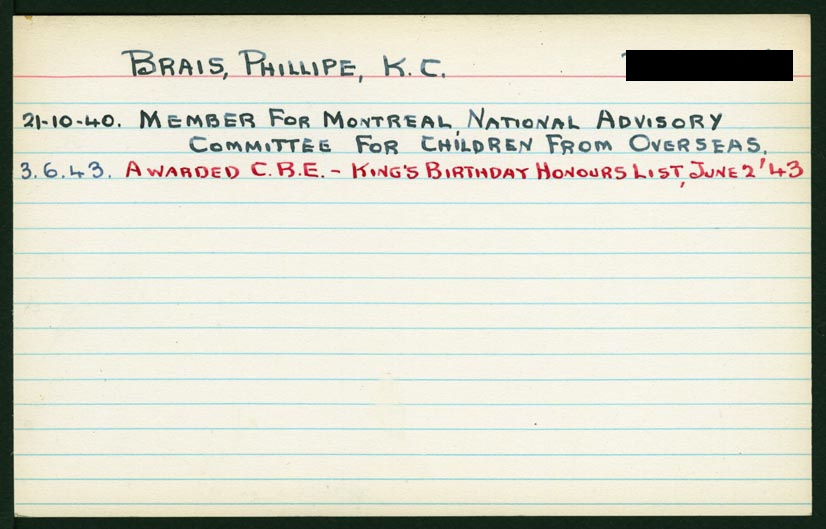 BRAIS, PHILLIPE, K.C.
21-10-40. MEMBER FOR MONTREAL, NATIONAL ADVISORY
COMMITTEE FOR CHILDREN FROM OVERSEAS.
3.6.43. AWARDED C.B.E. - KING'S BIRTHDAY HONOURS LIST, JUNE 2'43